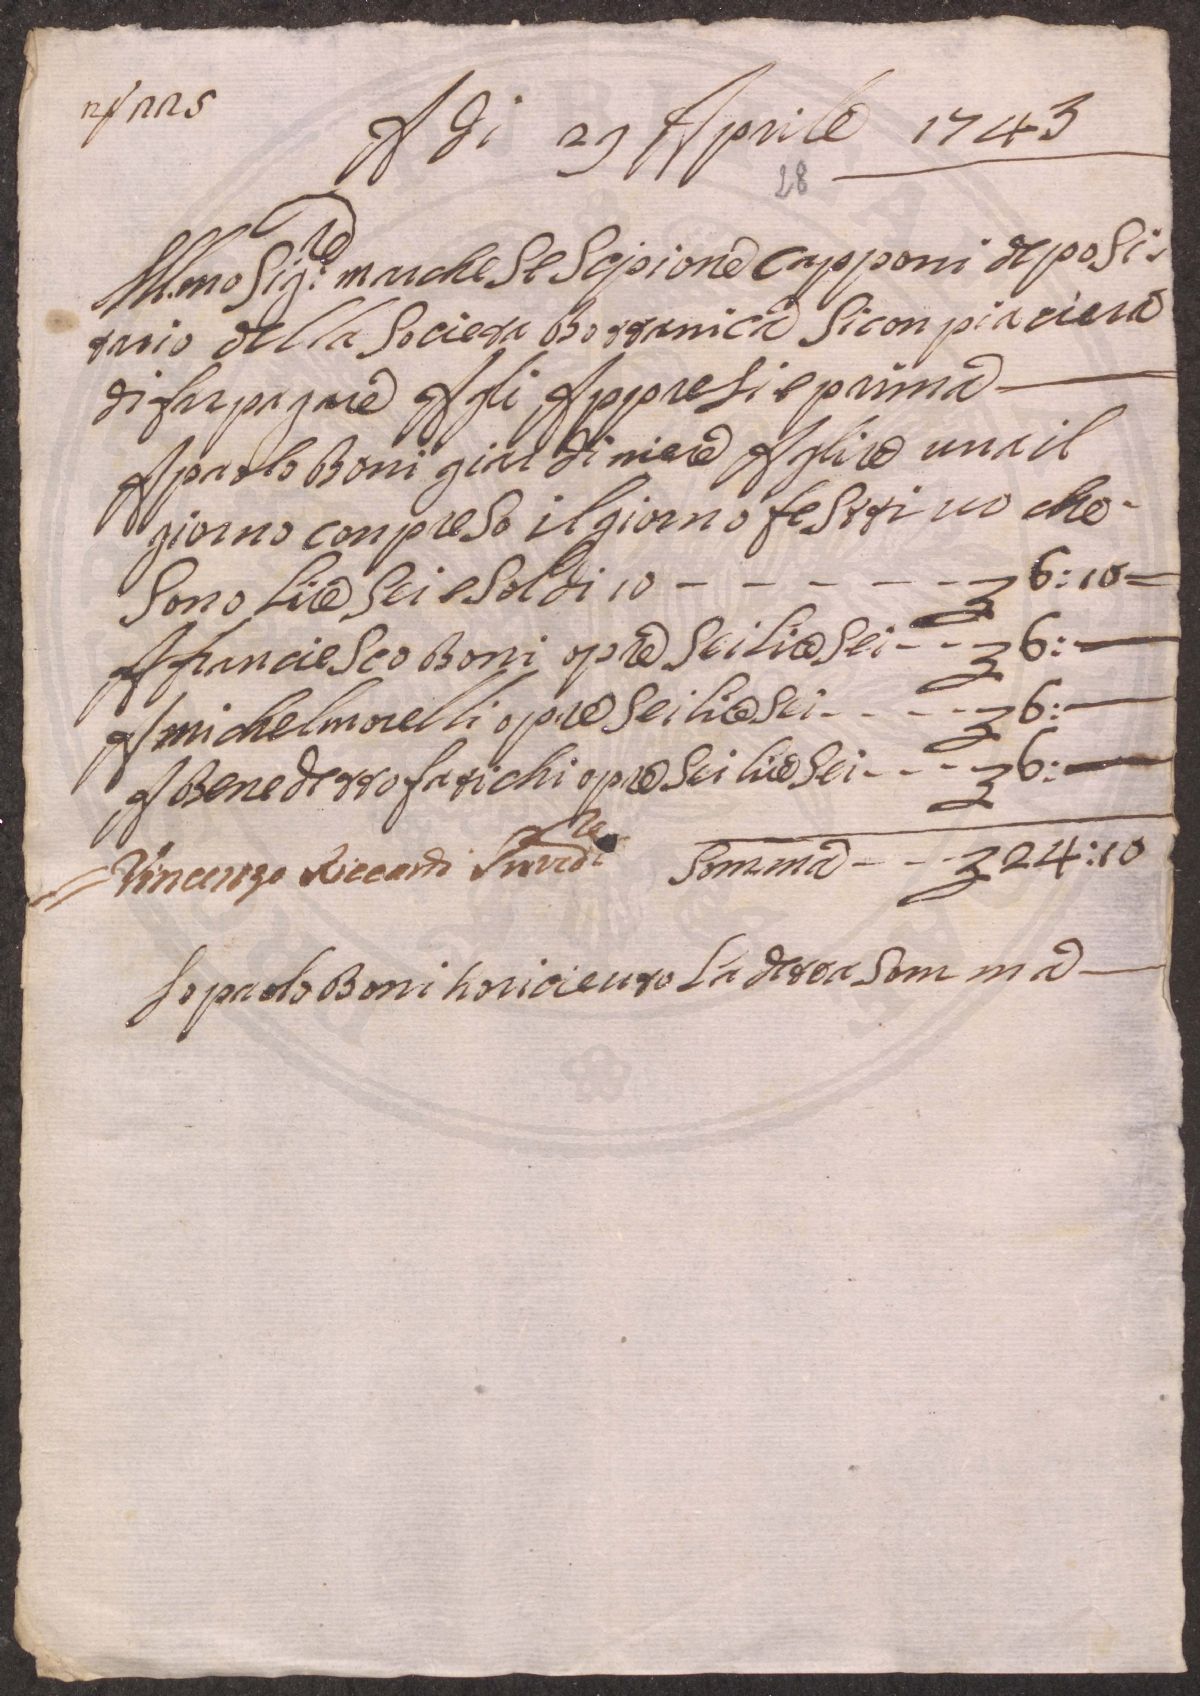 A di 29 Aprile 1743
28
Ill.mo Sig:re marchese Scipione Capponi deposi
tario della Società Bottanica Si conpiacierà
di far pagare Agli Appresi e prima
A paolo Boni giardiniere A lire una il
giorno conpreso il giorno festtiuo che
Sono Lire Sei e Soldi 10 - - - - - - 6: 10
A franciesco Boni opre Sei lire Sei - - 6: —
A michel morelli opre Sei lire Sei - - - - 6: —
A Benedetto fatichi opre Sei lire Sei - - - 6: —
Vincenzo Riccardi
Somma - - - 24: 10
Io paolo Boni ho riceuto La detta Somma